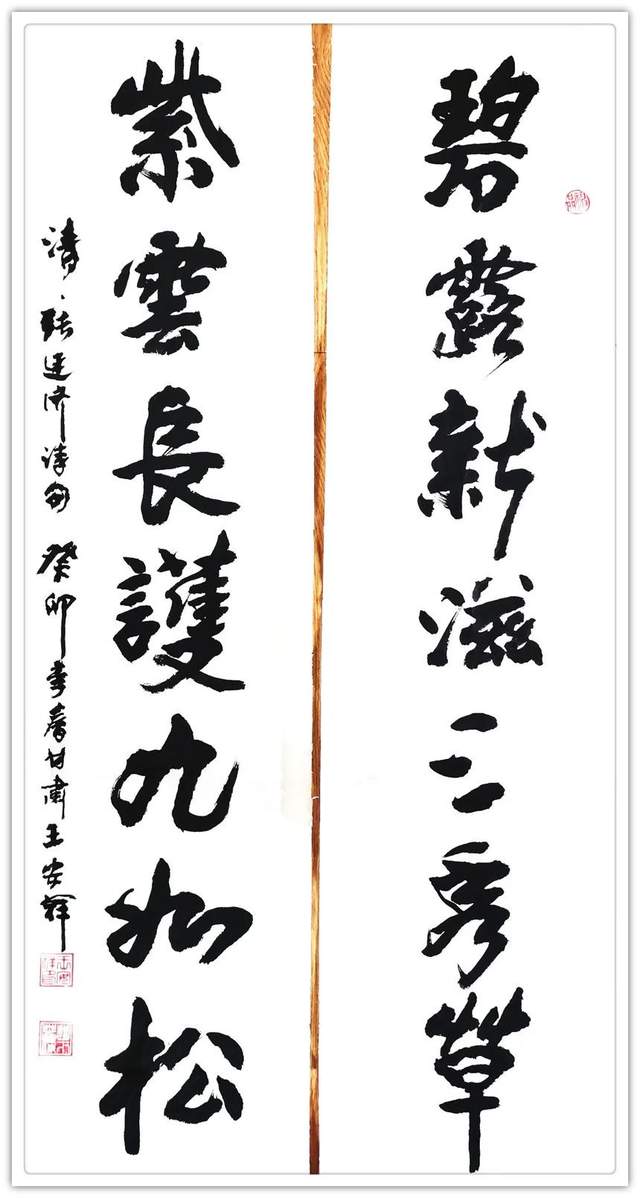 碧露新滋三秀草
紫雲長護九如松
清、張廷濟詩句 癸卯季春甘肅王安輝